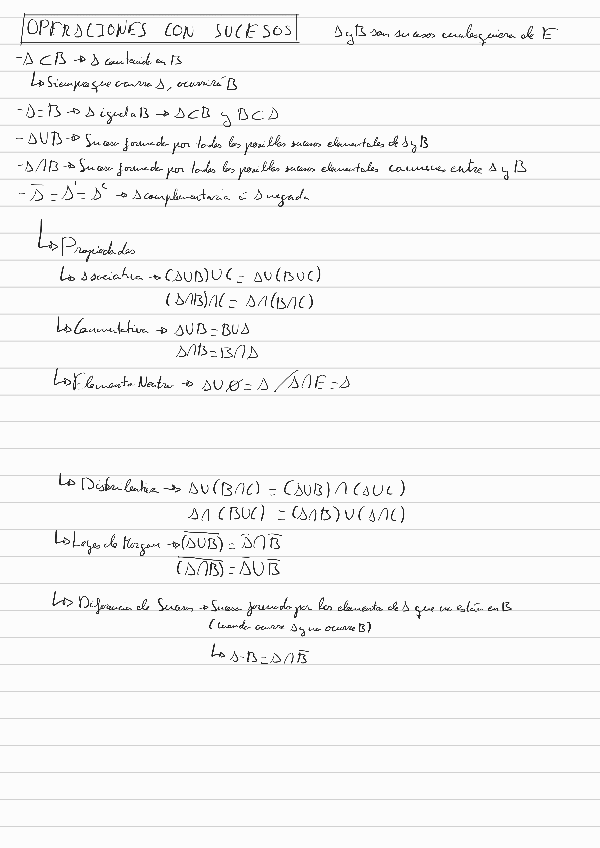 OPERACIONES CON SUCESOS A y B son sucesos cualesquiera de E
- A ⊂ B → A contenido en B
↳ Siempre que ocurra A, ocurrirá B
- A = B → A igual a B → A ⊂ B y B ⊂ A
- A∪B → Suceso formado por todos los posibles sucesos elementales de A y B
- A∩B → Suceso formado por todos los posibles sucesos elementales comunes entre A y B
- A̅ = A' = Aᶜ → A complementario ó A negada
↳ Propiedades
↳ Asociativa → (A∪B)∪C = A∪(B∪C)
(A∩B)∩C = A∩(B∩C)
↳ Conmutativa → A∪B = B∪A
A∩B = B∩A
↳ Elemento Neutro → A∪Ø = A / A∩E = A
↳ Distributiva → A∪(B∩C) = (A∪B)∩(A∪C)
A∩(B∪C) = (A∩B)∪(A∩C)
↳ Leyes de Morgan → (A∪B)̅ = A̅∩B̅
(A∩B)̅ = A̅∪B̅
↳ Diferencia de Sucesos → Suceso formado por los elementos de A que no están en B
(cuando ocurre A y no ocurre B)
↳ A-B = A∩B̅